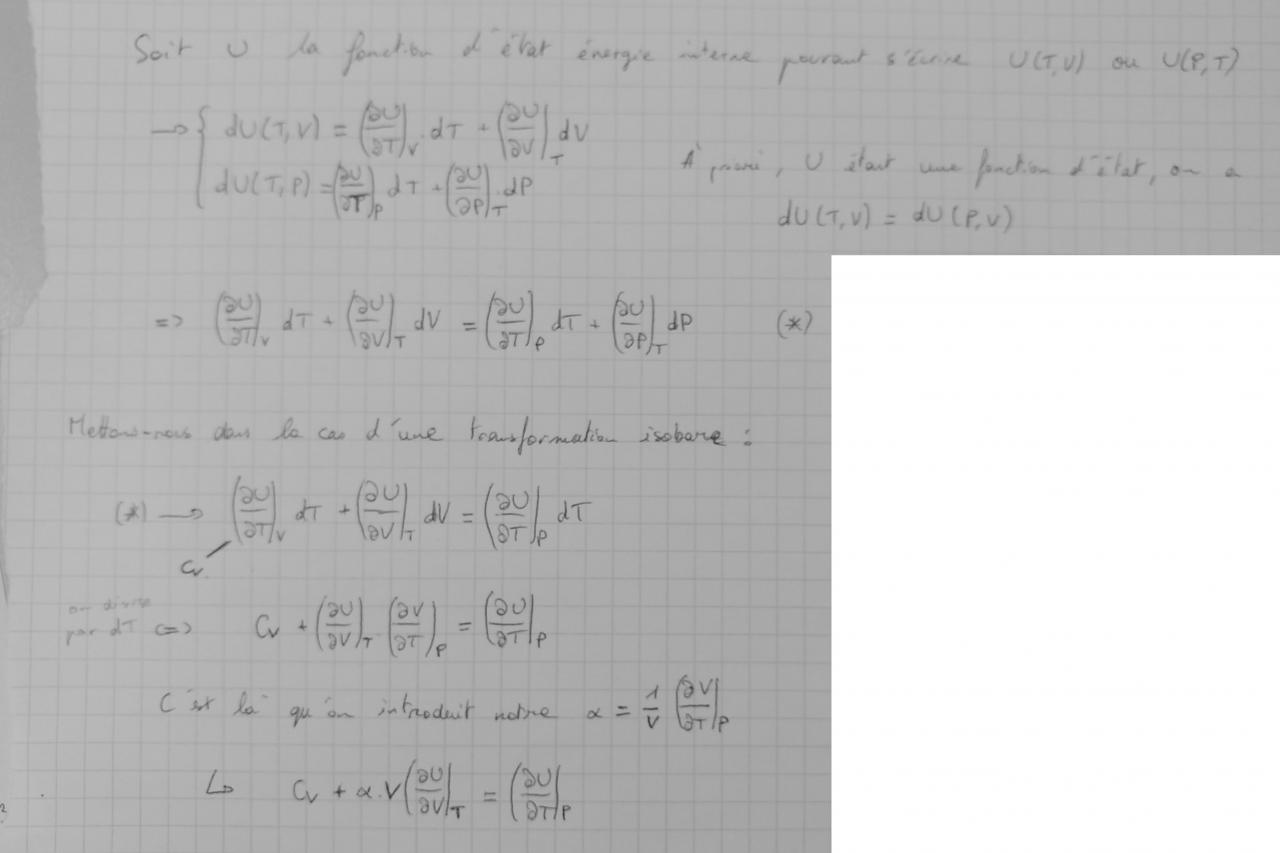 Soit U la fonction d'état énergie interne pouvant s'écrire U(T,V) ou U(P,T)
→ { dU(T,V) = (∂U/∂T)_V . dT + (∂U/∂V)_T dV
dU(T,P) = (∂U/∂T)_P dT + (∂U/∂P)_T . dP
A priori, U étant une fonction d'état, on a
dU(T,V) = dU(P,V)
=> (∂U/∂T)_V dT + (∂U/∂V)_T dV = (∂U/∂T)_P dT + (∂U/∂P)_T dP (*)
Mettons-nous dans le cas d'une transformation isobare :
(*) → (∂U/∂T)_V dT + (∂U/∂V)_T dV = (∂U/∂T)_P dT
Cv
on divise
par dT <=> Cv + (∂U/∂V)_T (∂V/∂T)_P = (∂U/∂T)_P
C'est là qu'on introduit notre α = 1/V (∂V/∂T)_P
↳ Cv + α.V (∂U/∂V)_T = (∂U/∂T)_P